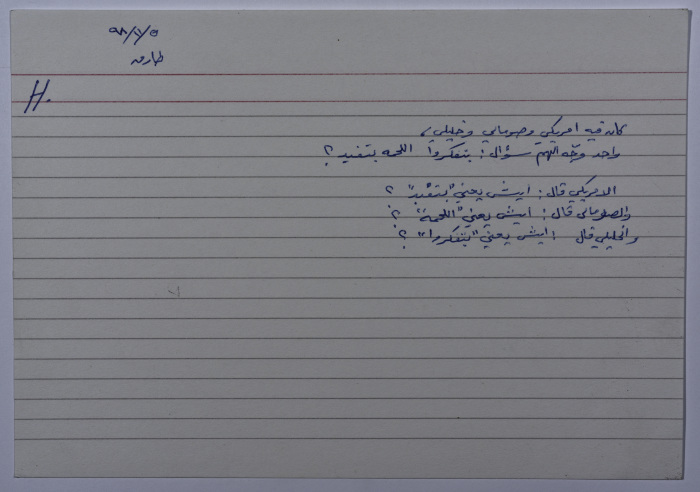 ٩٨/٧/٥
طارق
H.
كان فيه امريكي وصومالي وخليلي،
واحد وجّه الهم سؤال: بتفكروا اللحمه بتفيد؟
الامريكي قال: ايش يعني "بتفيد" ؟
والصومالي قال: ايش يعني "اللحمة" ؟
والخليلي قال: ايش يعني "بتفكروا" ؟